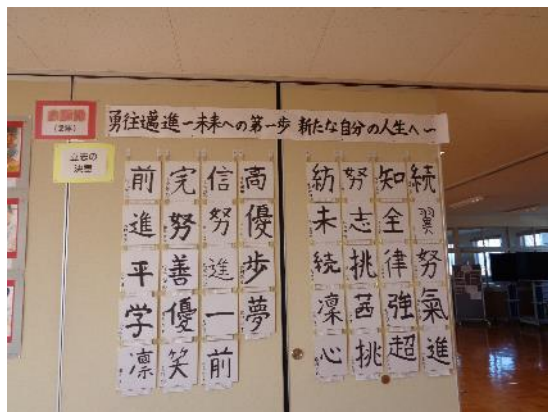 (2年)
立志の
決意
勇往邁進~未来への第一歩 新たな自分の人生へ~
前 完 信 高
進 努 努 優
平 善 進 歩
学 優 一 夢
凛 笑 前
紡 努 知 続
未 志 全 翼
続 挑 律 努
凛 茜 強 氣
心 挑 超 進